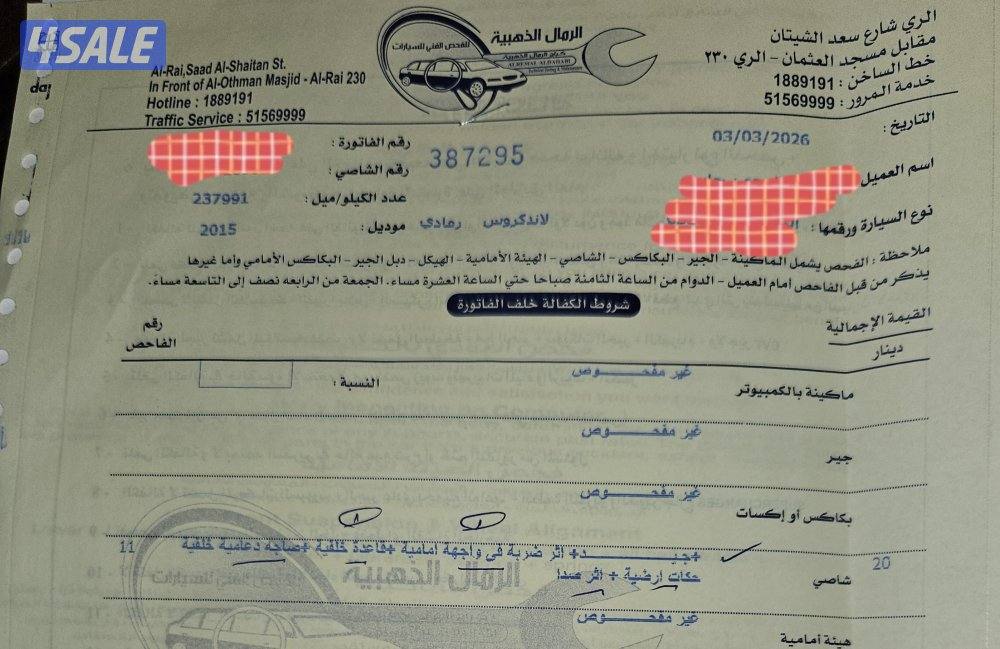 4SALE
الري شارع سعد الشيتان
مقابل مسجد العثمان - الري ٢٣٠
خط الساخن : 1889191
خدمة المرور : 51569999
الرمال الذهبية
للفحص الفني للسيارات
كراج الرمال الذهبية
ALREMAL ALDAHABI
Technical Testing & Maintenance
Al-Rai,Saad Al-Shaitan St.
In Front of Al-Othman Masjid - Al-Rai 230
Hotline : 1889191
Traffic Service : 51569999
التاريخ : 03/03/2026
رقم الفاتورة : 387295
اسم العميل
رقم الشاصي :
عدد الكيلو/ميل : 237991
نوع السيارة ورقمها : لاندكروس رمادي
موديل : 2015
ملاحظة : الفحص يشمل الماكينة - الجير - البكاكس - الشاصي - الهيئة الأمامية - الهيكل - دبل الجير - البكاكس الأمامي وأما غيرها
يذكر من قبل الفاحص أمام العميل - الدوام من الساعة الثامنة صباحا حتي الساعة العشرة مساء. الجمعة من الرابعه نصف إلى التاسعة مساء.
شروط الكفالة خلف الفاتورة
القيمة الإجمالية
دينار
رقم
الفاحص
ماكينة بالكمبيوتر غير مفحوص النسبة :
جير غير مفحوص
بكاكس أو إكسات غير مفحوص
20 شاصي +جيد+ اثر ضربة في واجهة امامية +قاعدة خلفية +صاجه دعامية خلفية 11
حكات ارضية + اثر صدا
هيئة أمامية غير مفحوص
الرمال الذهبية